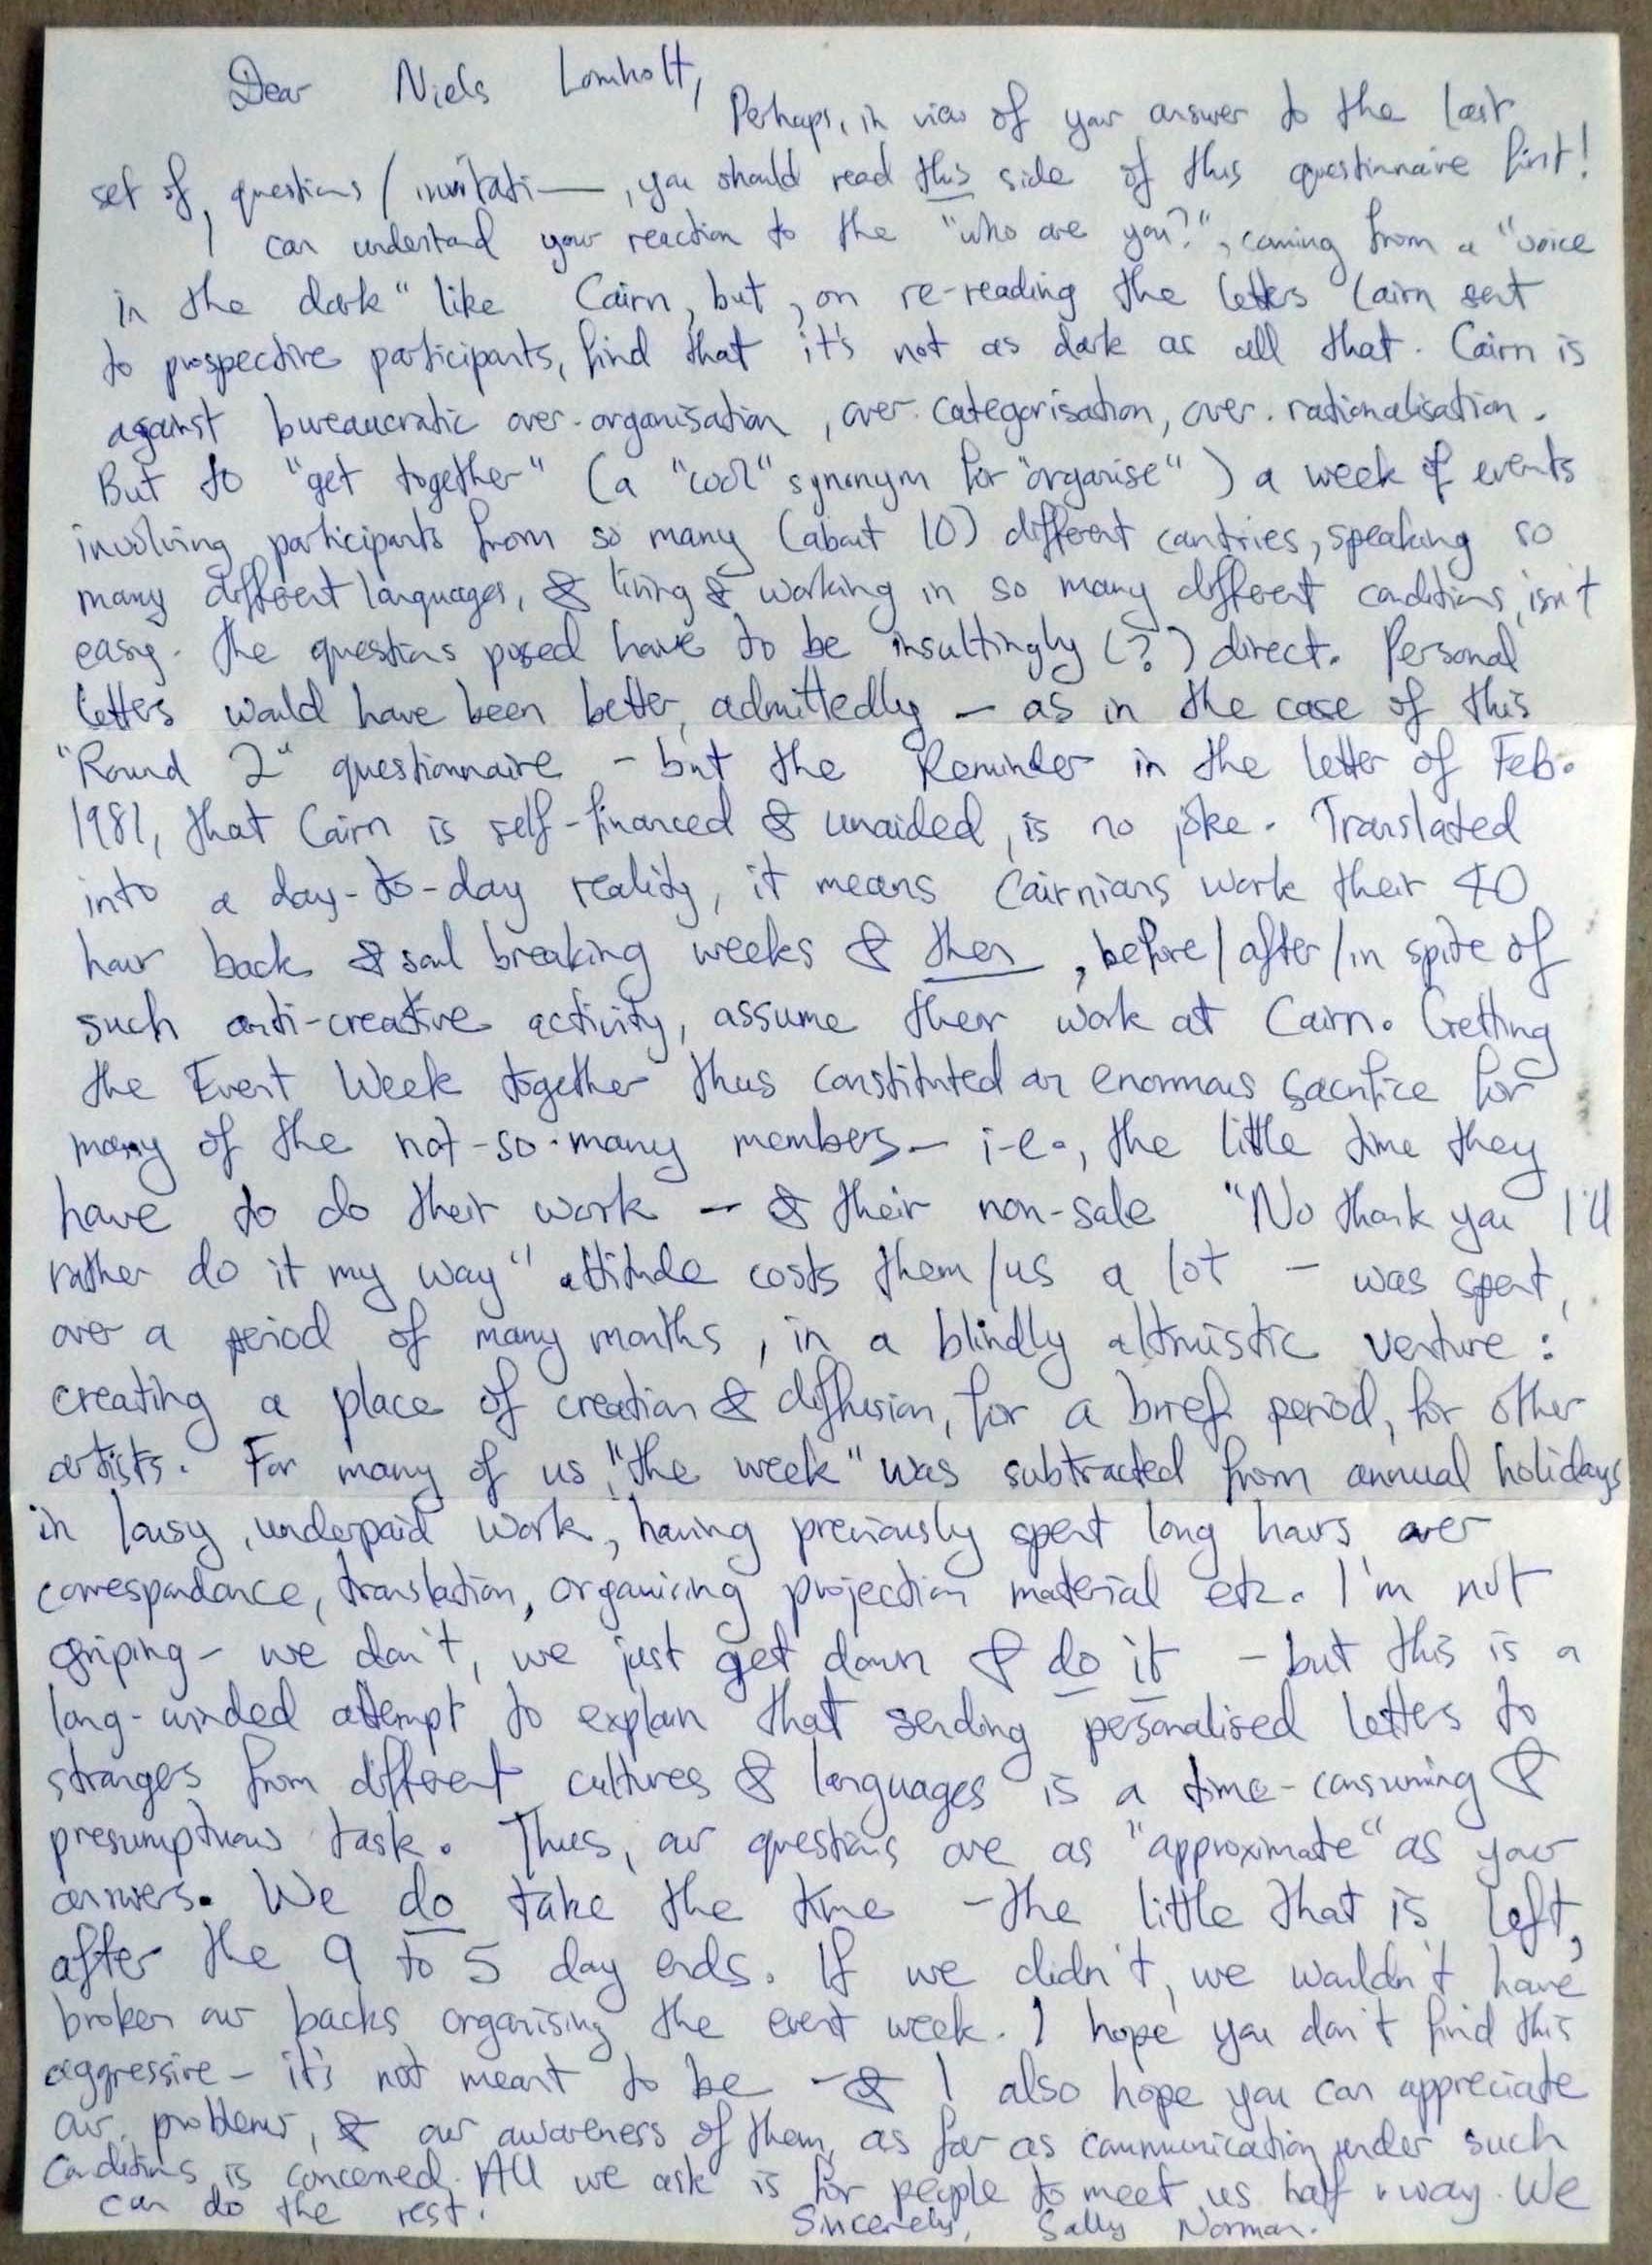 Dear Niels Lomholt,
Perhaps, in view of your answer to the last
set of questions / invitati—, you should read this side of this questionnaire first!
I can understand your reaction to the "who are you?", coming from a "voice
in the dark" like Cairn, but, on re-reading the letters Cairn sent
to prospective participants, find that it's not as dark as all that. Cairn is
against bureaucratic over-organisation, over-categorisation, over-rationalisation.
But to "get together" (a "cool" synonym for "organise") a week of events
involving participants from so many (about 10) different countries, speaking so
many different languages, & living & working in so many different conditions, isn't
easy. The questions posed have to be insultingly (?) direct. Personal
letters would have been better, admittedly – as in the case of this
"Round 2" questionnaire – but the Reminder in the letter of Feb.
1981, that Cairn is self-financed & unaided, is no joke. Translated
into a day-to-day reality, it means Cairnians work their 40
hour back & soul breaking weeks & then, before/after/in spite of
such anti-creative activity, assume their work at Cairn. Getting
the Event Week together thus constituted an enormous sacrifice for
many of the not-so-many members – i-e., the little time they
have to do their work – & their non-sale "No thank you I'll
rather do it my way" attitude costs them/us a lot – was spent,
over a period of many months, in a blindly altruistic venture:
creating a place of creation & diffusion, for a brief period, for other
artists. For many of us, "the week" was subtracted from annual holidays
in lousy, underpaid work, having previously spent long hours over
correspondance, translation, organising projection material etc. I'm not
griping – we don't, we just get down & do it – but this is a
long-winded attempt to explain that sending personalised letters to
strangers from different cultures & languages is a time-consuming &
presumptuous task. Thus, our questions are as "approximate" as your
answers. We do take the time – the little that is left,
after the 9 to 5 day ends. If we didn't, we wouldn't have
broken our backs organising the event week. I hope you don't find this
aggressive – it's not meant to be – & I also hope you can appreciate
our problems, & our awareness of them, as far as communication under such
conditions is concerned. All we ask is for people to meet us half way. We
can do the rest.
Sincerely, Sally Norman.